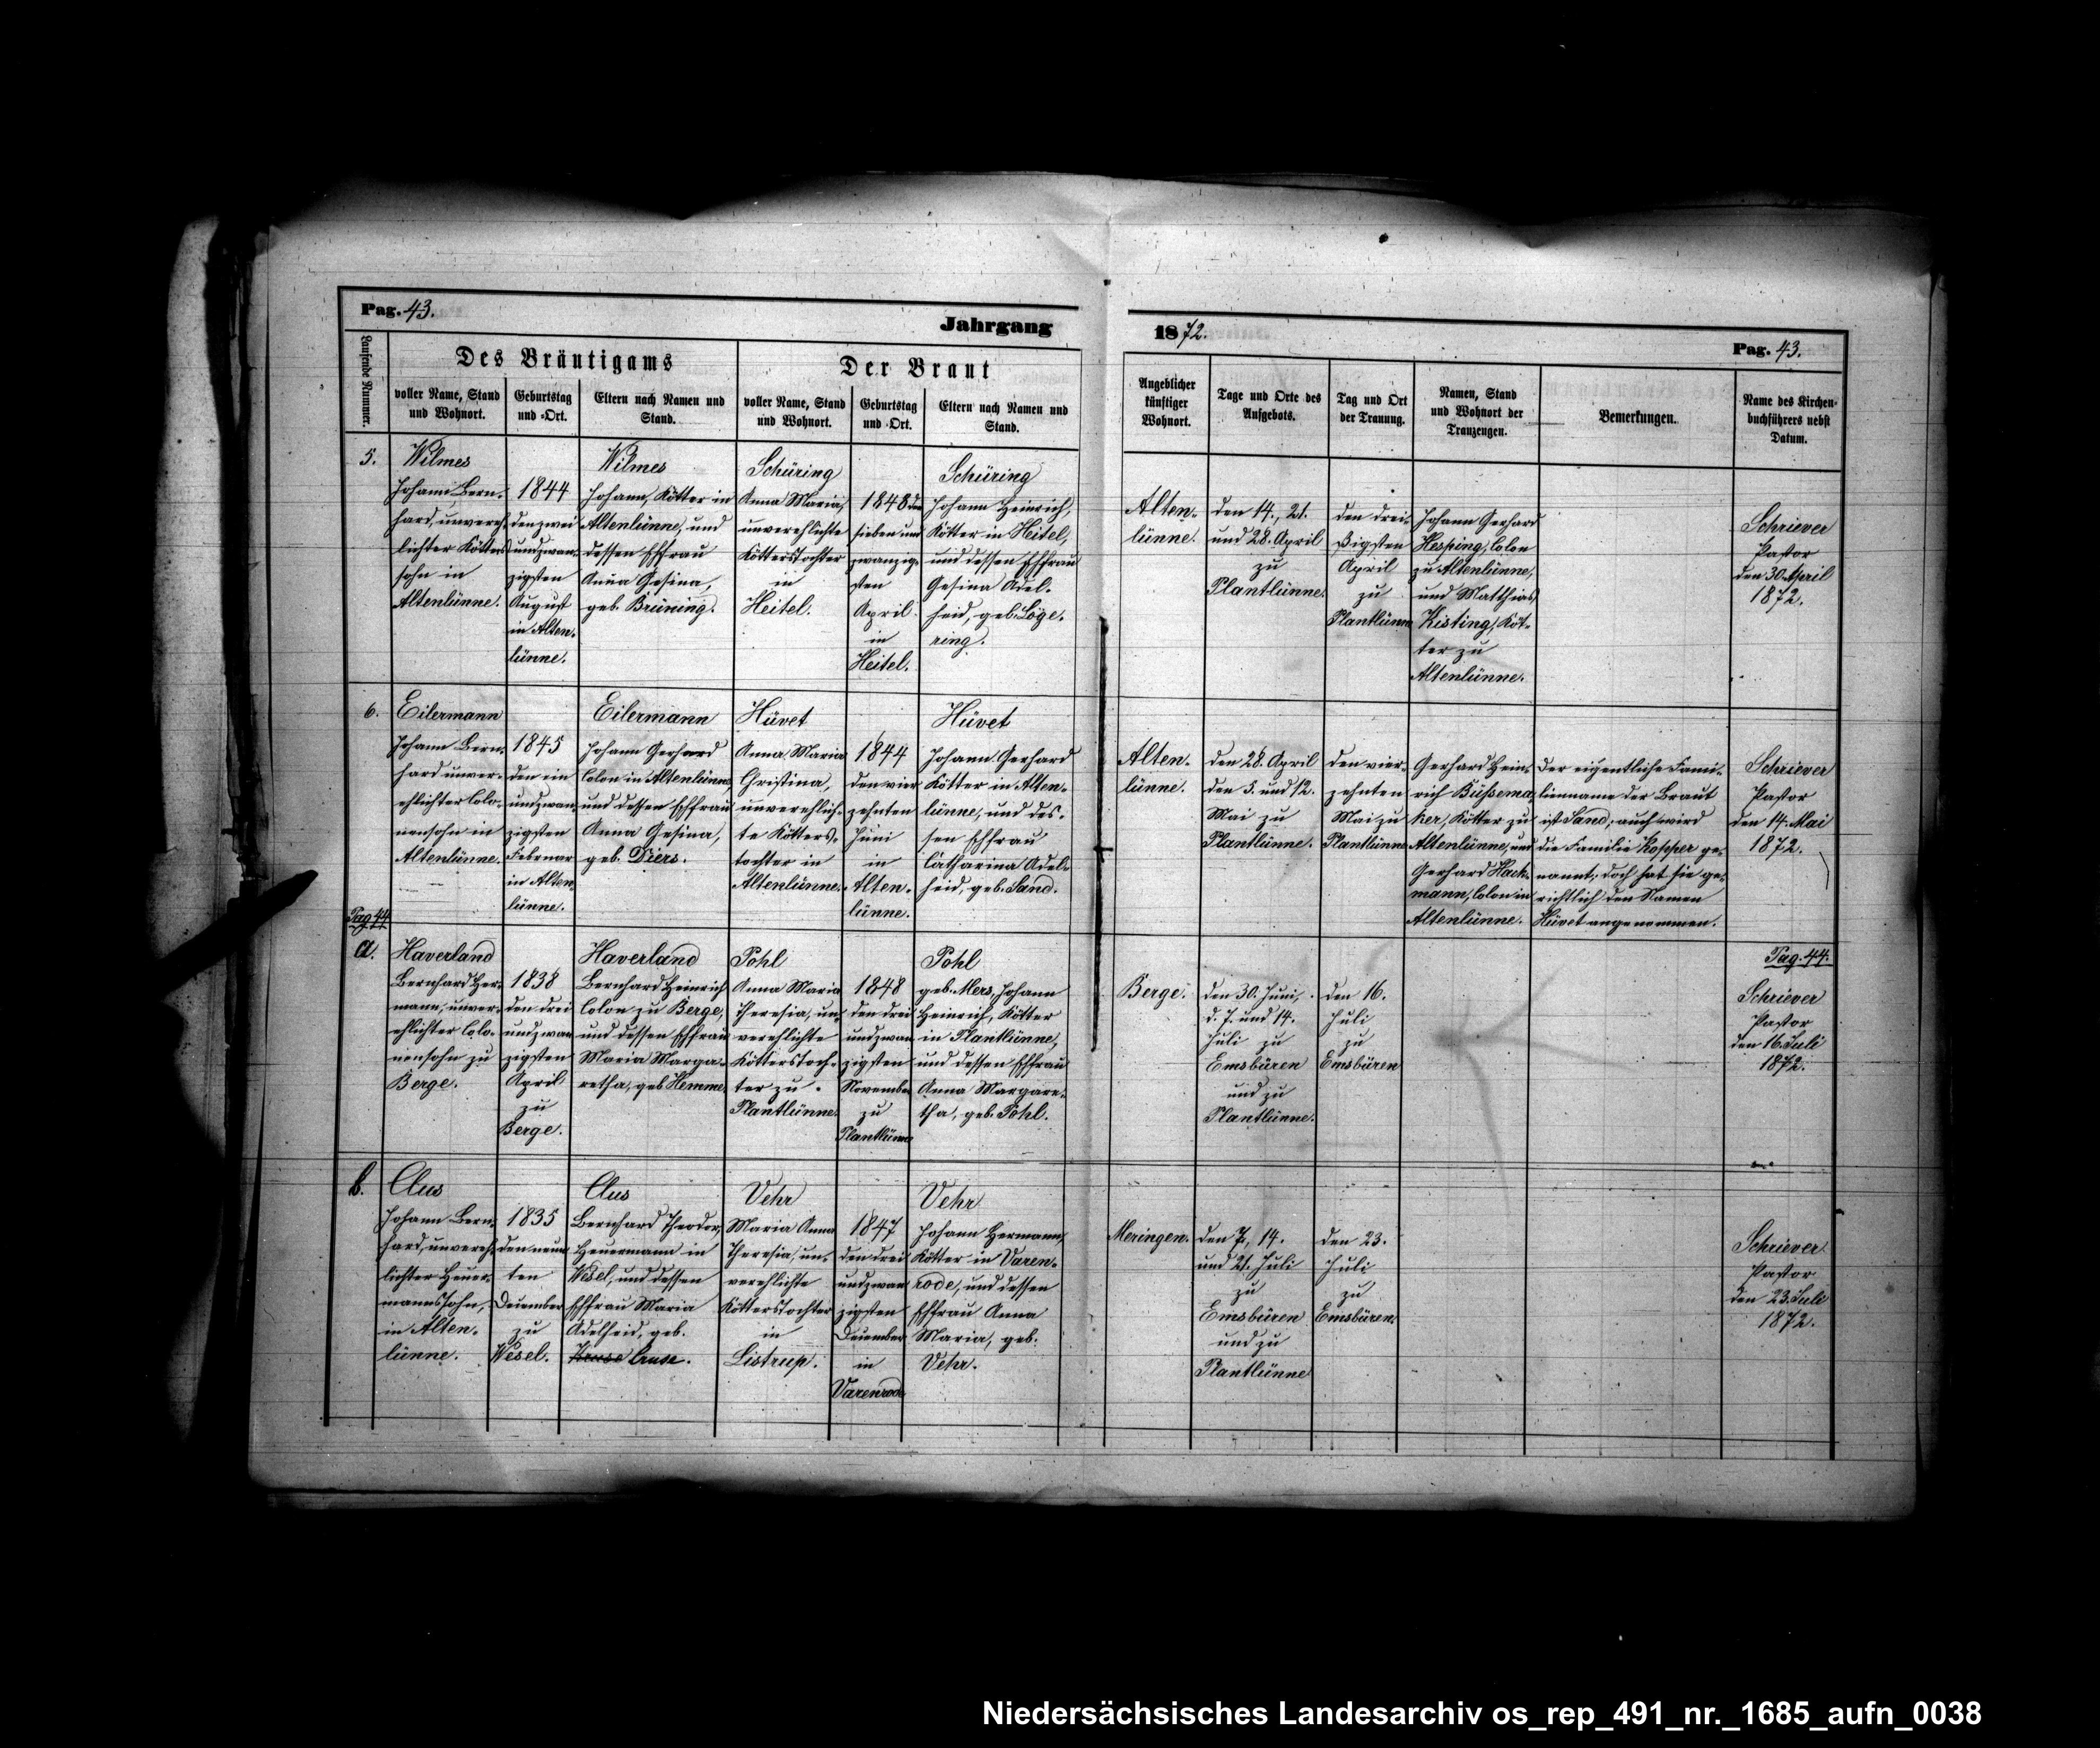 Pag. 43.
Jahrgang
1872.
Pag. 43.
Laufende Nummer.
Des Bräutigams
Der Braut
voller Name, Stand
und Wohnort.
Geburtstag
und -Ort.
Eltern nach Namen und
Stand.
voller Name, Stand
und Wohnort.
Geburtstag
und -Ort.
Eltern nach Namen und
Stand.
Angeblicher
künftiger
Wohnort.
Tage und Orte des
Aufgebots.
Tag und Ort
der Trauung.
Namen, Stand
und Wohnort der
Trauzeugen.
Bemerkungen.
Name des Kirchen-
buchführers nebst
Datum.
5.
Wilmes
Johann Bern-
hard, unvereh-
lichter Kötters-
sohn in
Altenlünne.
1844
den zwei
undzwan-
zigsten
August
in Alten-
lünne.
Wilmes
Johann, Kötter in
Altenlünne, und
dessen Ehefrau
Anna Gesina,
geb. Brüning.
Schüring
Anna Maria,
unverehlichte
Kötterstochter
in
Heitel.
1848 den
sieben und
zwanzig-
sten
April
in
Heitel.
Schüring
Johann Heinrich,
Kötter in Heitel,
und dessen Ehefrau
Gesina Adel-
heid, geb. Löge-
ring.
Alten-
lünne.
den 14., 21.
und 28. April
zu
Plantlünne.
den drei-
ßigsten
April
zu
Plantlünne
Johann Gerhard
Hesping, Colon
zu Altenlünne,
und Matthias
Kisting, Köt-
ter zu
Altenlünne.
Schriever
Pastor
den 30. April
1872.
6.
Eilermann
Johann Bern-
hard unver-
ehlichter Colo-
nensohn in
Altenlünne.
1845
den ein
undzwan-
zigsten
Februar
in Alten-
lünne.
Eilermann
Johann Gerhard
Colon in Altenlünne
und dessen Ehefrau
Anna Gesina,
geb. Diers.
Hüvet
Anna Maria
Christina,
unverehlich-
te Kötters-
tochter in
Altenlünne.
1844
den vier
zehnten
Juni
in
Alten-
lünne.
Hüvet
Johann Gerhard
Kötter in Alten-
lünne, und des-
sen Ehefrau
Catharina Adel-
heid, geb. Sand.
Alten-
lünne.
den 28. April
den 5. und 12.
Mai zu
Plantlünne.
den vier-
zehnten
Mai zu
Plantlünne
Gerhard Hein-
rich Büssema-
ker, Kötter zu
Altenlünne, und
Gerhard Hack-
mann, Colon in
Altenlünne.
Der eigentliche Fami-
lienname der Braut
ist Sand; auch wird
die Familie Kopper ge-
nannt; doch hat sie ge-
richtlich den Namen
Hüvet angenommen.
Schriever
Pastor
den 14. Mai
1872.
Pag 44
a.
Haverland
Bernhard Her-
mann, unver-
ehlichter Colo-
nensohn zu
Berge.
1838
den drei
undzwan
zigsten
April
zu
Berge.
Haverland
Bernhard Heinrich
Colon zu Berge,
und dessen Ehefrau
Maria Marga-
retha, geb. Hemme.
Pohl
Anna Maria
Theresia, un-
verehlichte
Kötterstoch-
ter zu
Plantlünne.
1848
den drei
undzwan
zigsten
November
zu
Plantlünne
Pohl
geb. Mers, Johann
Heinrich, Kötter
in Plantlünne,
und dessen Ehefrau
Anna Margare-
tha, geb. Pohl.
Berge.
den 30. Juni,
d. 7. und 14.
Juli zu
Emsbüren
und zu
Plantlünne.
den 16.
Juli
zu
Emsbüren
Pag. 44.
Schriever
Pastor
den 16. Juli
1872.
b.
Clus
Johann Bern-
hard, unvereh-
lichter Heuer-
mannssohn,
in Alten-
lünne.
1835
den neun
ten
Dezember
zu
Wesel.
Clus
Bernhard Theodor,
Heuermann in
Wesel, und dessen
Ehefrau Maria
Adelheid, geb.
Kruse Cruse.
Vehr
Maria Anna
Theresia, un-
verehlichte
Kötterstochter
in
Listrup.
1847
den drei
undzwan
zigsten
Dezember
in
Varenrode
Vehr
Johann Hermann,
Kötter in Varen-
rode, und dessen
Ehefrau Anna
Maria, geb.
Vehr.
Meringen.
den 7., 14.
und 21. Juli
zu
Emsbüren
und zu
Plantlünne
den 23.
Juli
zu
Emsbüren.
Schriever
Pastor
den 23. Juli
1872.
Niedersächsisches Landesarchiv os_rep_491_nr._1685_aufn_0038